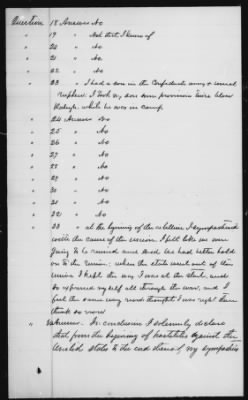 Question 18 Answer No
" 19 " Not that I know of
" 20 " No
" 21 " No
" 22 " No
" 23 " I had a son in the Confederate army & several
nephews. I took my son some provisions twice below
Raleigh while he was in camp
" 24 Answer No
" 25 " No
" 26 " No
" 27 " No
" 28 " No
" 29 " No
" 30 " No
" 31 " No
" 32 " No
" 33 " at the begining of the rebellion I sympathized
with the cause of the union. I felt like we were
going to be ruined and said we had better hold
on to the union: when the state went out of the
union I kept the way I was at the start, and
so expressed myself all through the war, and I
feel the same way now thought I was right then
think so now
In conclusion I solemnly declare
that from the beginning of hostilities against the
United States to the end thereof my sympathies